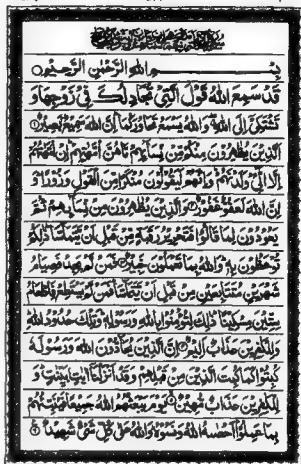 بِسْمِ اللهِ الرَّحْمٰنِ الرَّحِيْمِ
قَدْ سَمِعَ اللهُ قَوْلَ الَّتِيْ تُجَادِلُكَ فِيْ زَوْجِهَا وَ
تَشْتَكِيْٓ اِلَى اللهِ وَاللهُ يَسْمَعُ تَحَاوُرَكُمَا اِنَّ اللهَ سَمِيْعٌۢ بَصِيْرٌ ۱
اَلَّذِيْنَ يُظٰهِرُوْنَ مِنْكُمْ مِّنْ نِّسَآئِهِمْ مَّا هُنَّ اُمَّهٰتِهِمْ اِنْ اُمَّهٰتُهُمْ
اِلَّا الّٰٓئِيْ وَلَدْنَهُمْ وَاِنَّهُمْ لَيَقُوْلُوْنَ مُنْكَرًا مِّنَ الْقَوْلِ وَزُوْرًا وَ
اِنَّ اللهَ لَعَفُوٌّ غَفُوْرٌ ۲ وَالَّذِيْنَ يُظٰهِرُوْنَ مِنْ نِّسَآئِهِمْ ثُمَّ
يَعُوْدُوْنَ لِمَا قَالُوْا فَتَحْرِيْرُ رَقَبَةٍ مِّنْ قَبْلِ اَنْ يَّتَمَآسَّا ذٰلِكُمْ
تُوْعَظُوْنَ بِهٖ وَاللهُ بِمَا تَعْمَلُوْنَ خَبِيْرٌ ۳ فَمَنْ لَّمْ يَجِدْ فَصِيَامُ
شَهْرَيْنِ مُتَتَابِعَيْنِ مِنْ قَبْلِ اَنْ يَّتَمَآسَّا فَمَنْ لَّمْ يَسْتَطِعْ فَاِطْعَامُ
سِتِّيْنَ مِسْكِيْنًا ذٰلِكَ لِتُؤْمِنُوْا بِاللهِ وَرَسُوْلِهٖ وَتِلْكَ حُدُوْدُ اللهِ
وَلِلْكٰفِرِيْنَ عَذَابٌ اَلِيْمٌ ۴ اِنَّ الَّذِيْنَ يُحَآدُّوْنَ اللهَ وَرَسُوْلَهٗ
كُبِتُوْا كَمَا كُبِتَ الَّذِيْنَ مِنْ قَبْلِهِمْ وَقَدْ اَنْزَلْنَآ اٰيٰتٍۭ بَيِّنٰتٍ وَ
لِلْكٰفِرِيْنَ عَذَابٌ مُّهِيْنٌ ۵ يَوْمَ يَبْعَثُهُمُ اللهُ جَمِيْعًا فَيُنَبِّئُهُمْ
بِمَا عَمِلُوْا اَحْصٰهُ اللهُ وَنَسُوْهُ وَاللهُ عَلٰى كُلِّ شَيْءٍ شَهِيْدٌ ۶